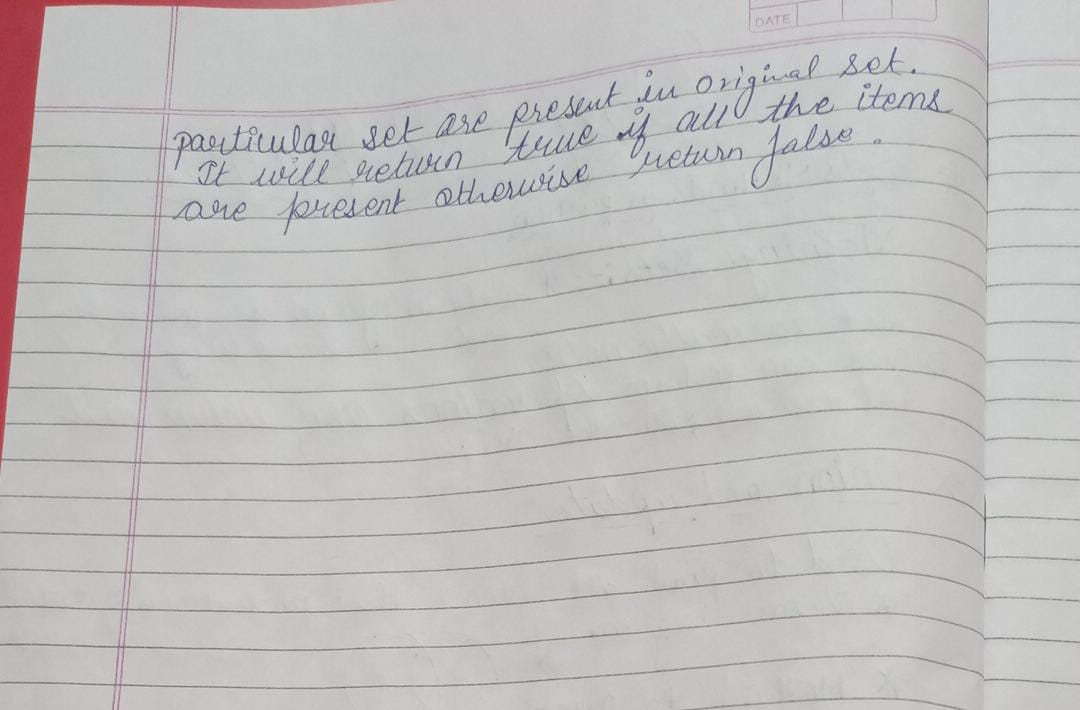 DATE
particular set are present in original set.
It will return true if all the items
are present otherwise return false.